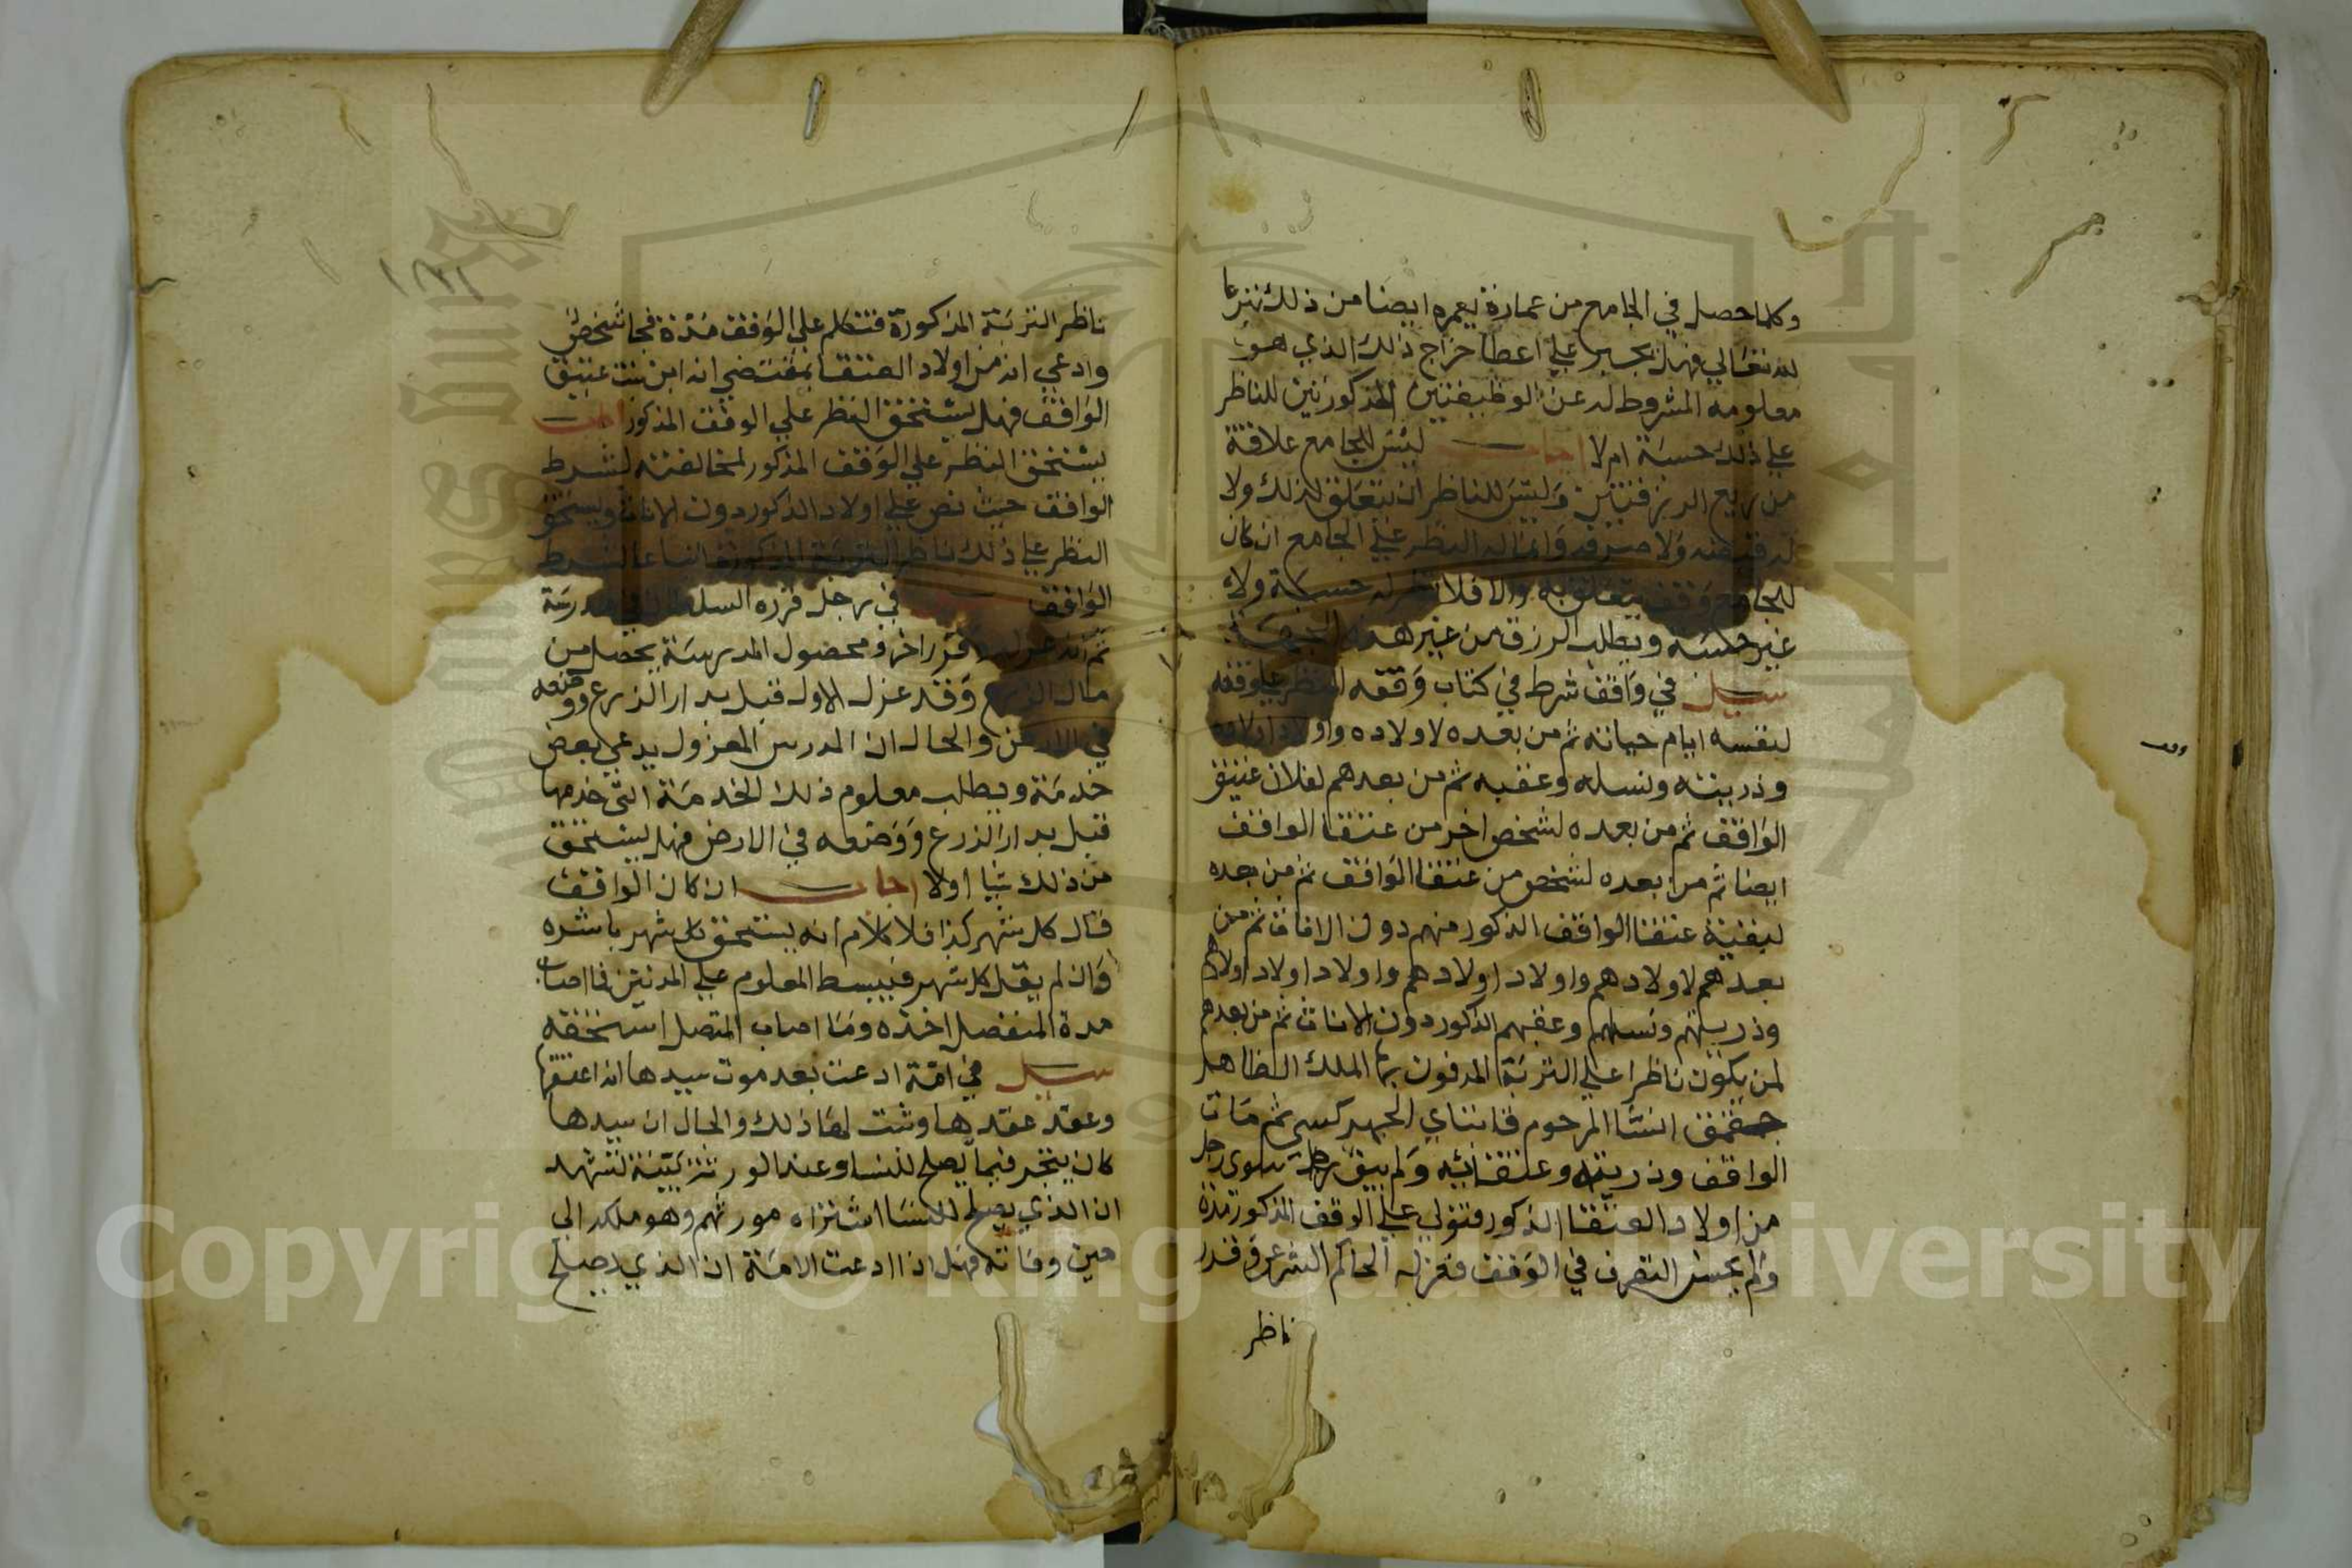 وكلما حصل في الجامع من عمارة يعمره ايضا من ذلك تبرعا
لله تعالي فهل يجبر علي اعطا خراج ذلك الذي هو
معلومه المشروط له عن الوظيفتين المذكورتين للناظر
علي ذلك حسبة ام لا اجاب ليس للجامع علاقة
من ريع الرزقتين وليس للناظر ان يتعلق لذلك ولا
له قبضه ولا صرفه وانما له النظر علي الجامع ان كان
للجامع وقف يتعلق به والا فلا نظر له حسبة ولا
غير حسبه ويطلب الرزق من غير هذه الجهة
سيل في واقف شرط في كتاب وقفه النظر علي وقفه
لنفسه ايام حياته ثم من بعده لاولاده واولاد اولاده
وذريته ونسله وعقبه ثم من بعدهم لفلان عتيق
الواقف ثم من بعده لشخص اخر من عتقا الواقف
ايضا ثم من بعده لشخص من عتقا الواقف ثم من بعده
لبقية عتقا الواقف الذكور منهم دون الاناث ثم من
بعدهم لاولادهم واولاد اولادهم واولاد اولاد اولادهم
وذريتهم ونسلهم وعقبهم الذكور دون الاناث ثم من بعدهم
لمن يكون ناظرا علي التربة المدفون بها الملك الظاهر
جقمق انشا المرحوم قانباي الجهركسي ثم مات
الواقف وذريته وعتقائه ولم يبق سوي رجل
من اولاد العتقا الذكور فتولي علي الوقف المذكور مدة
ولم يحسن التصرف في الوقف فعزله الحاكم الشرعي وقرر
ناظر
ناظر التربة المذكورة فتكلم علي الوقف مدة فجا شخص
وادعي انه من اولاد العتقا بمقتضي انه ابن بنت عتيق
الواقف فهل يستحق النظر علي الوقف المذكور اجاب
يستحق النظر علي الوقف المذكور لمخالفته لشرط
الواقف حيث نص علي اولاد الذكور دون الاناث ويستحق
النظر علي ذلك ناظر التربة المذكورة اتباعا لشرط
الواقف في رجل قرره السلطان في مدرسة
ثم انه عزله وقرر اخر ومحصول المدرسة يحصل من
مال الزرع وقد عزل الاول قبل بدار الزرع ووضعه
في الارض والحال ان المدرس المعزول يدعي بعض
خدمة ويطلب معلوم ذلك الخدمة التي خدمها
قبل بدار الزرع ووضعه في الارض فهل يستحق
من ذلك شيا اولا اجاب ان كان الواقف
قال كل شهر كذا فلا كلام انه يستحق كل شهر باشره
وان لم يقل كل شهر فيبسط المعلوم علي المدتين فما اصاب
مدة المنفصل اخذه وما اصاب المتصل استحقه
سيل في امة ادعت بعد موت سيدها انه اعتقها
وعقد عقدها وثبت لها ذلك والحال ان سيدها
كان يتجر فيما يصلح للنسا وعند الورثة بينة تشهد
ان الذي يصلح للنسا اشتراه مورثهم وهو ملكه الي
حين وفاته فهل اذا ادعت الامة ان الذي يصلح